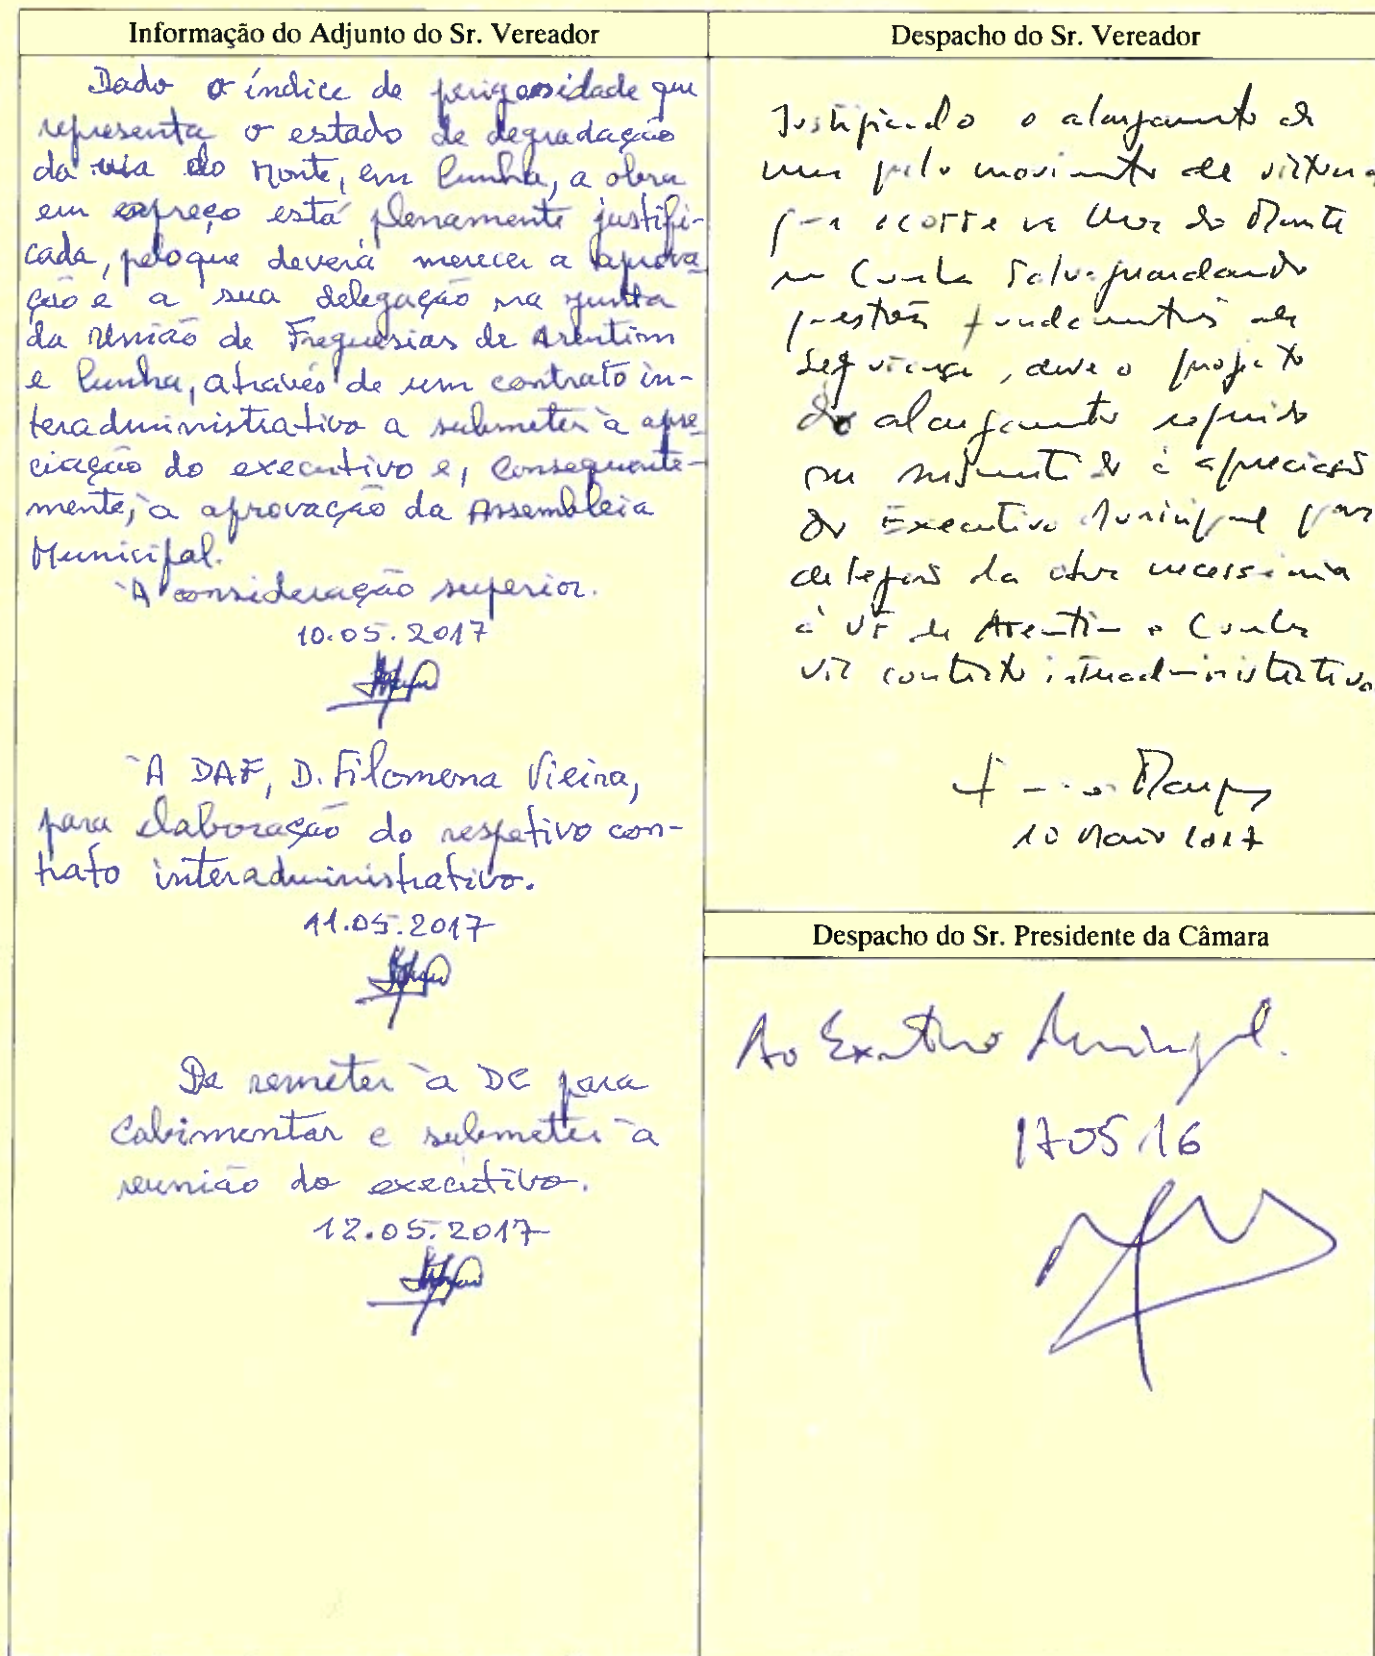 Informação do Adjunto do Sr. Vereador
Dado o índice de perigosidade que
representa o estado de degradação
da rua do Monte, em Cunha, a obra
em apreço está plenamente justifi-
cada, pelo que deverá merecer a aprova-
ção e a sua delegação na junta
da União de Freguesias de Arentim
e Cunha, através de um contrato in-
teradministrativo a submeter à apre-
ciação do executivo e, consequente-
mente, à aprovação da Assembleia
Municipal.
À consideração superior.
10.05.2017
À DAF, D. Filomena Vieira,
para elaboração do respetivo con-
trato interadministrativo.
11.05.2017
De remeter à DC para
Cabimentar e submeter à
reunião do executivo.
12.05.2017
Despacho do Sr. Vereador
o alargamento
movimento de
ocorre na do Monte
Cunha Salvaguardando
questões fundamentais de
segurança, deve o projeto
do alargamento
à apreciação
do Executivo Municipal para
da obra necessária
à UF de Arentim e Cunha
via contrato interadministrativo
10 Maio 2017
Despacho do Sr. Presidente da Câmara
Ao Executivo Municipal.
17.05.16